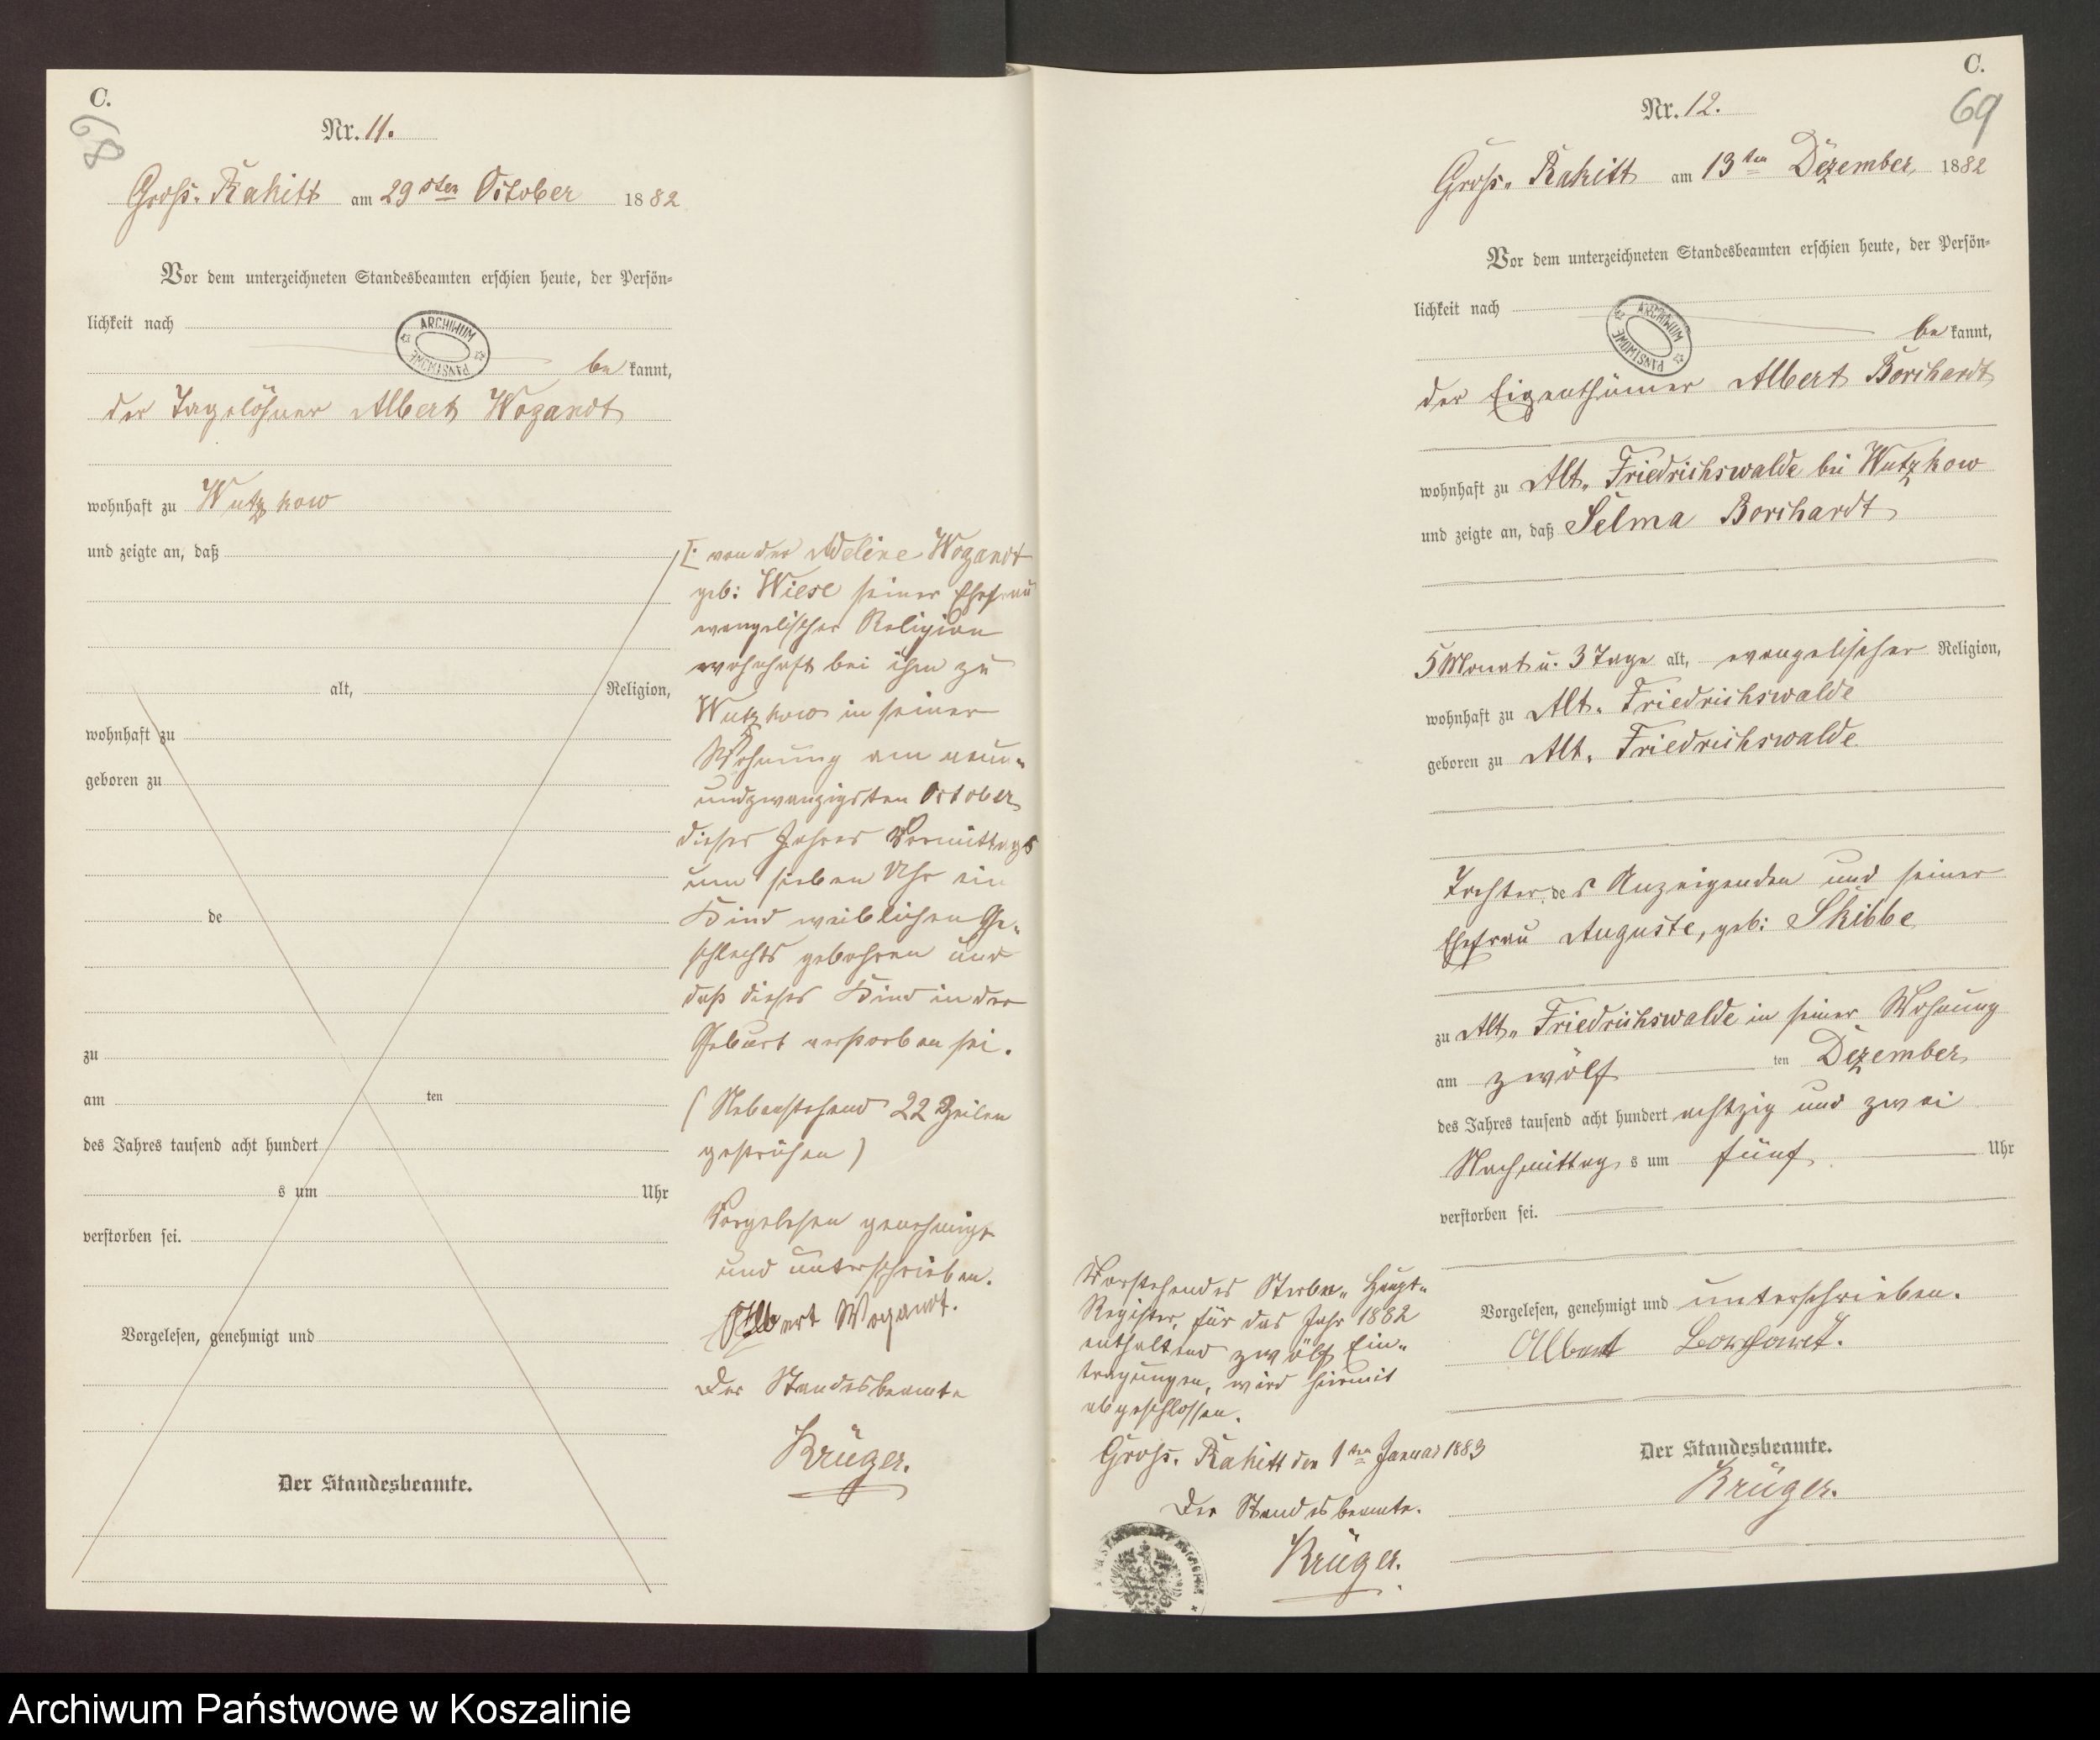 C.
68
Nr. 11.
Gross. Rakitt am 29sten October 1882
Vor dem unterzeichneten Standesbeamten erschien heute, der Persön-
lichkeit nach
be kannt,
der Tagelöhner Albert Wogandt
wohnhaft zu Wutzkow
und zeigte an, daß
alt, Religion,
wohnhaft zu
geboren zu
de
zu
am ten
des Jahres tausend acht hundert
s um Uhr
verstorben sei.
Vorgelesen, genehmigt und
Der Standesbeamte.
ARCHIWUM PAŃSTWOWE
von der Adeline Wogandt
geb: Wiese seiner Ehefrau
evangelischer Religion
wohnhaft bei ihm zu
Wutzkow in seiner
Wohnung am neun-
undzwanzigsten October
dieses Jahres Vormittags
um sieben Uhr ein
Kind weiblichen Ge-
schlechts gebohren und
daß dieses Kind in der
Geburt verstorben sei.
(Nebenstehend 22 Zeilen
gestrichen)
Vorgelesen genehmigt
und unterschrieben.
Albert Wogandt.
Der Standesbeamte
Krüger.
C.
69
Nr. 12.
Gross. Rakitt am 13ten Dezember 1882
Vor dem unterzeichneten Standesbeamten erschien heute, der Persön-
lichkeit nach
be kannt,
ARCHIWUM PAŃSTWOWE
der Eigenthümer Albert Borchardt
wohnhaft zu Alt. Friedrichswalde bei Wutzkow
und zeigte an, daß Selma Borchardt
5 Monat u. 3 Tage alt, evangelischer Religion,
wohnhaft zu Alt. Friedrichswalde
geboren zu Alt. Friedrichswalde
Tochter des Anzeigenden und seiner
Ehefrau Auguste, geb: Skibbe
zu Alt. Friedrichswalde in seiner Wohnung
am zwölf ten Dezember
des Jahres tausend acht hundert achtzig und zwei
Nachmittag s um fünf Uhr
verstorben sei.
Vorgelesen, genehmigt und unterschrieben.
Albert Borchardt.
Der Standesbeamte.
Krüger.
Vorstehendes Sterbe- Haupt-
Register, für das Jahr 1882
enthaltend zwölf Ein-
tragungen, wird hiermit
abgeschlossen.
Gross. Rakitt den 1ten Januar 1883
Der Standesbeamte.
Krüger.
Archiwum Państwowe w Koszalinie